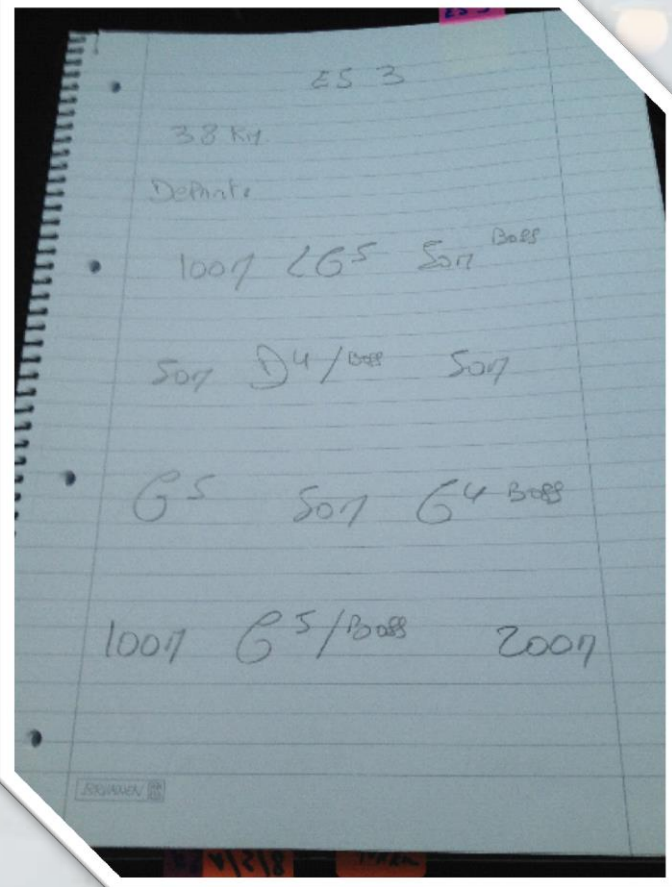 ES 3
ES 3
38 Km
Départ.
100m <G5 50m Boss
50m D4/Boss 50m
G5 50m G4 Boss
100m G5/Boss 200m
BRUNNEN